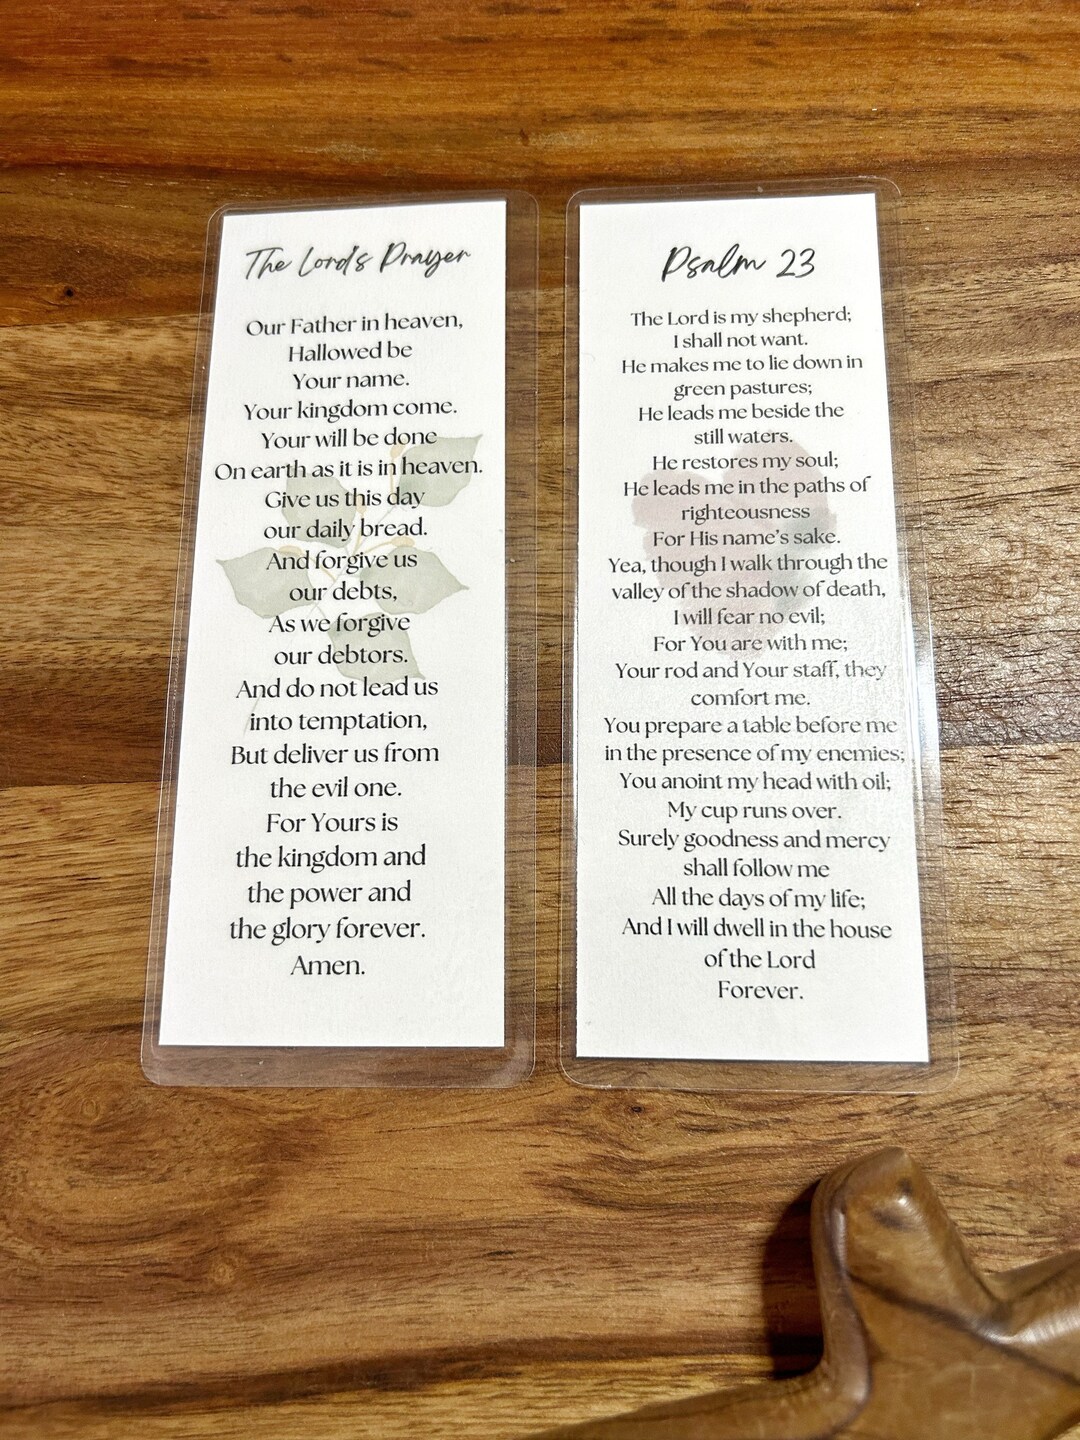 The Lord's Prayer
Our Father in heaven,
Hallowed be
Your name.
Your kingdom come.
Your will be done
On earth as it is in heaven.
Give us this day
our daily bread.
And forgive us
our debts,
As we forgive
our debtors.
And do not lead us
into temptation,
But deliver us from
the evil one.
For Yours is
the kingdom and
the power and
the glory forever.
Amen.
Psalm 23
The Lord is my shepherd;
I shall not want.
He makes me to lie down in
green pastures;
He leads me beside the
still waters.
He restores my soul;
He leads me in the paths of
righteousness
For His name's sake.
Yea, though I walk through the
valley of the shadow of death,
I will fear no evil;
For You are with me;
Your rod and Your staff, they
comfort me.
You prepare a table before me
in the presence of my enemies;
You anoint my head with oil;
My cup runs over.
Surely goodness and mercy
shall follow me
All the days of my life;
And I will dwell in the house
of the Lord
Forever.